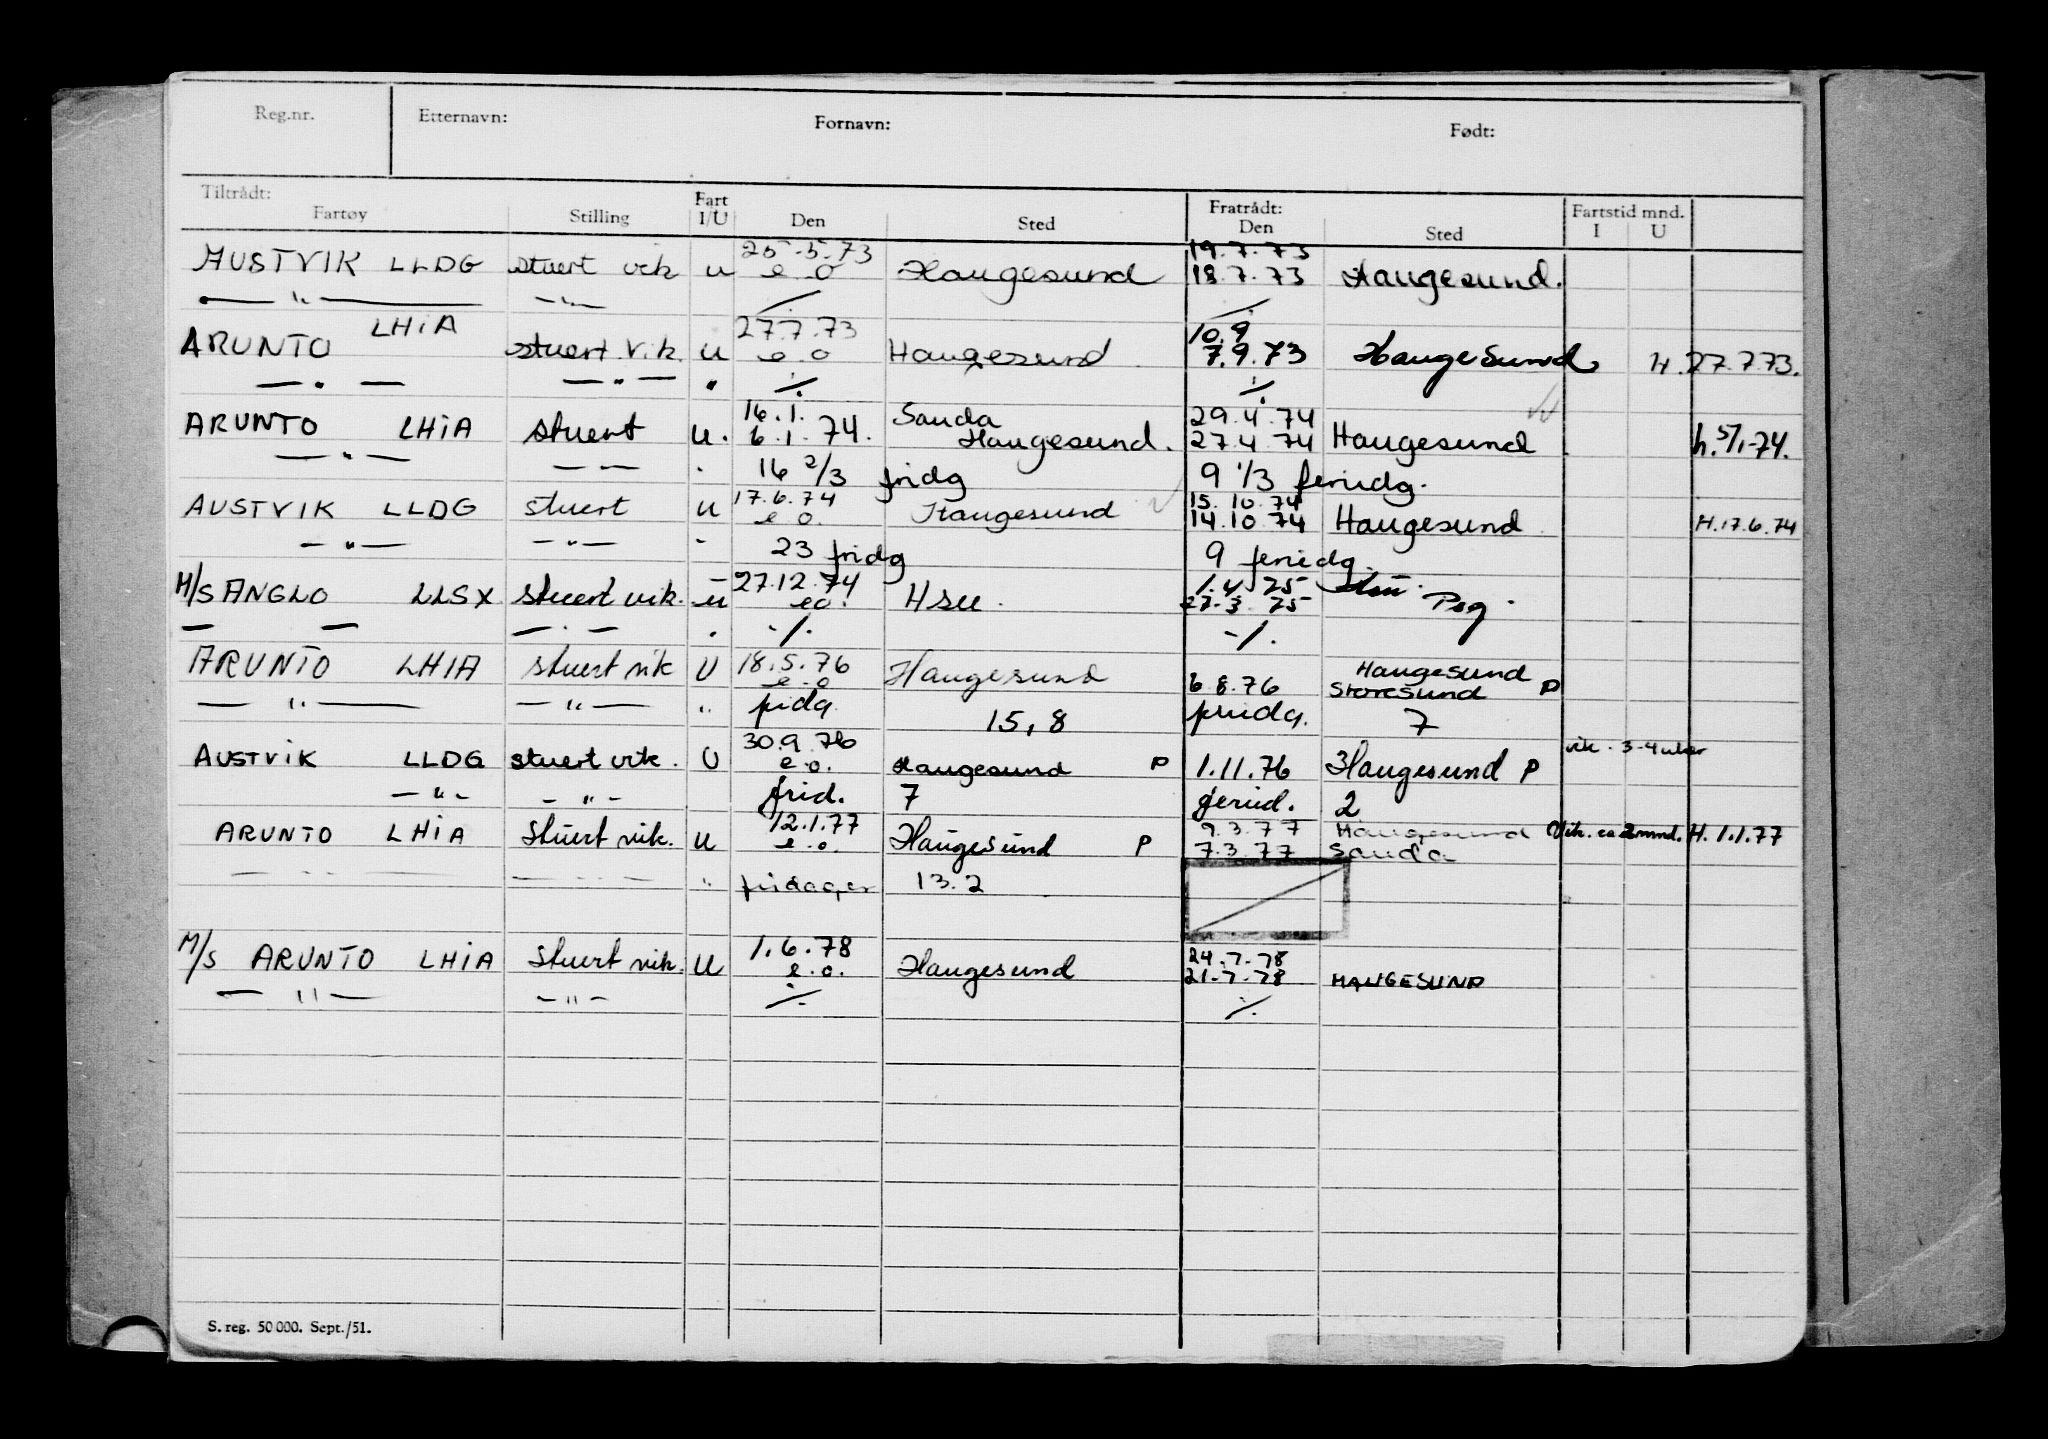 Reg.nr. Etternavn: Fornavn: Født:
Tiltrådt: Fratrådt: Fartstid mnd.
Fartøy Stilling Fart I/U Den Sted Den Sted I U
25.5.73 19.7.73
AUSTVIK LLDG stuert vik u e.o Haugesund 18.7.73 Haugesund.
— " — — " — ./. ./.
LHiA 27.7.73 10.9
ARUNTO stuert vik. u e o Haugesund 7.9.73 Haugesund H. 27.7.73.
— " — — " — " ./. ./.
16.1. Sauda 29.4.74
ARUNTO LHiA stuert u. 6.1.74. Haugesund. 27.4.74 Haugesund h. 5/1-74.
— " — — " — 16 2/3 fridg 9 1/3 feriedg.
17.6.74 15.10.74
AUSTVIK LLDG stuert u e o. Haugesund 14.10.74 Haugesund H. 17.6.74
— " — — " — 23 fridg 9 feriedg.
27.12.74 1.4.75
M/S ANGLO LLSX stuert vik. u eo. Hsu. 27.3.75 Psg.
— — — . — . -/. -/.
18.5.76 Haugesund
ARUNTO LHIA stuert vik U e.o Haugesund 6.8.76 Storesund P
— " — — " — " fridg. 15,8 friidg. 7
30.9.76 vik. 3-4 uker
AUSTViK LLDG stuert vik. U e.o. Haugesund P 1.11.76 Haugesund P
— " - - " - frid. 7 feried. 2
12.1.77 9.3.77 Haugesund Vik. ca 2 mnd. H. 1.1.77
ARUNTO LHiA Stuert vik. u e.o. Haugesund P 7.3.77 Sauda
— " — — " — " fridager 13.2
1.6.78 24.7.78
M/S ARUNTO LHiA Stuert vik. U e.o. Haugesund 21.7.78 HAUGESUND
— " — - " - ./. ./.
S. reg. 50 000. Sept./51.